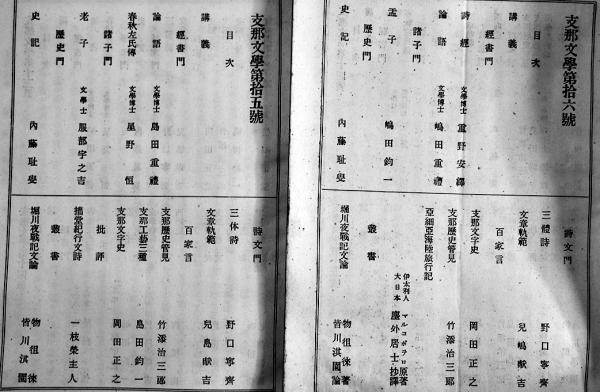 支那文學第拾六號
目次
講義
經書門
詩經 文學博士 重野安繹
論語 文學博士 嶋田重禮
諸子門
孟子 嶋田鈞一
歷史門
史記 內藤耻叟
詩文門
三體詩 野口寧齊
文章軌範 兒嶋獻吉
百家言
支那文字史 岡田正之
支那歷史管見 竹添治三郎
亞細亞海陸旅行記 伊太利人 マルコポヲロ原著 大日本 塵外居士抄譯
叢書
堀川夜戰記文論 物徂徠著 皆川淇園論
支那文學第拾五號
目次
講義
經書門
論語 文學博士 島田重禮
春秋左氏傳 文學博士 星野恒
諸子門
老子 文學士 服部宇之吉
歷史門
史記 內藤耻叟
詩文門
三体詩 野口寧齊
文章軌範 兒島獻吉
百家言
支那歷史管見 竹添治三郎
支那工藝三種 島田鈞一
支那文字史 岡田正之
批評
拙堂紀行文詩 一枝榮主人
叢書
堀川夜戰記文論 物徂徠 皆川淇園